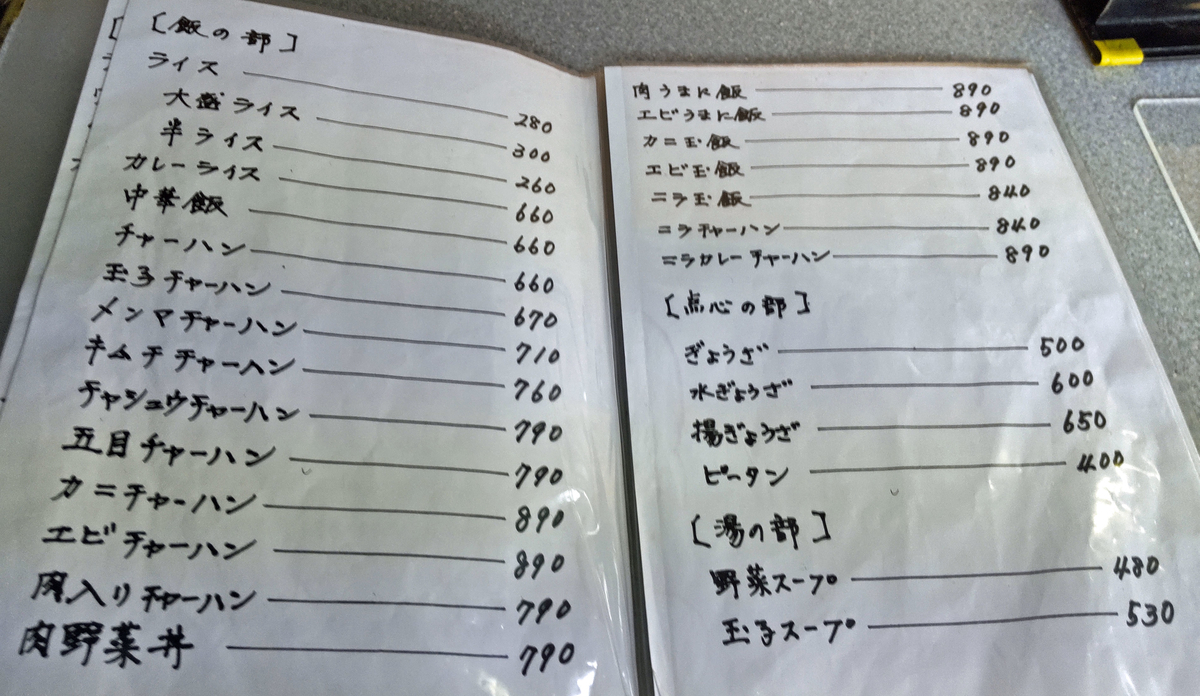 [飯の部]
ライス 280
大盛ライス 300
半ライス 260
カレーライス 660
中華飯 660
チャーハン 660
玉子チャーハン 670
メンマチャーハン 710
キムチチャーハン 760
チャシュウチャーハン 790
五目チャーハン 790
カニチャーハン 890
エビチャーハン 890
肉入りチャーハン 790
肉野菜丼 790
肉うまに飯 890
エビうまに飯 890
カニ玉飯 890
エビ玉飯 890
ニラ玉飯 840
ニラチャーハン 840
ニラカレーチャーハン 890
[点心の部]
ぎょうざ 500
水ぎょうざ 600
揚ぎょうざ 650
ピータン 400
[湯の部]
野菜スープ 480
玉子スープ 530